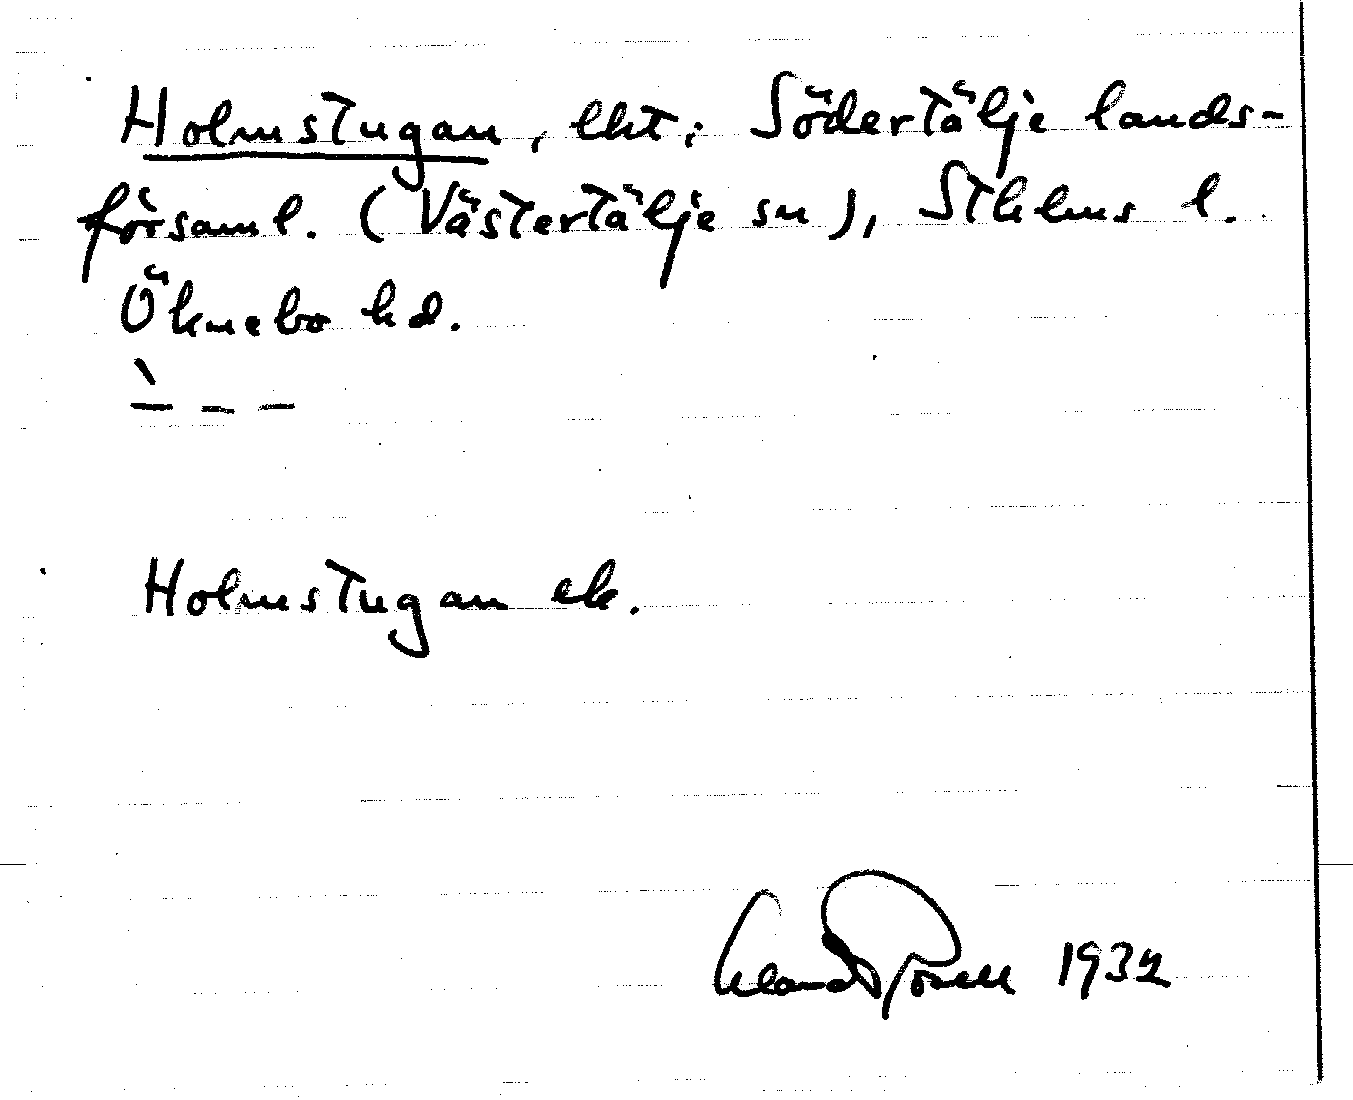 Holmstugan, lht, i Södertälje lands-
församl. (Västertälje sn), Sthlms l.
Öknebo hd.
Holmstugan ek.
1932